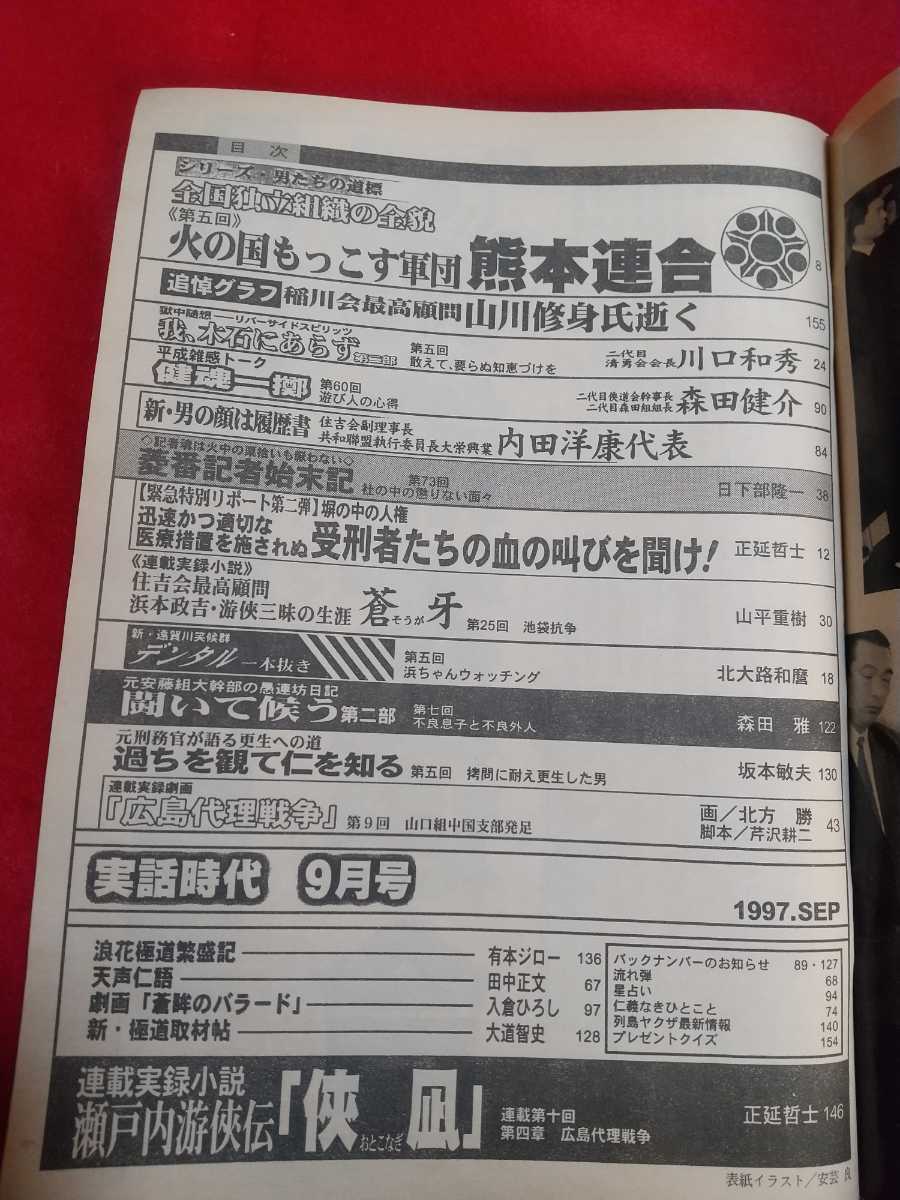 目次
シリーズ・男たちの道標
全国独立組織の全貌
《第五回》
火の国もっこす軍団 熊本連合 8
追悼グラフ 稲川会最高顧問 山川修身氏逝く 155
獄中随想――リバーサイドスピリッツ
我、木石にあらず 第二部 第五回 敢えて、要らぬ知恵づけを 二代目清勇会会長 川口和秀 24
平成雑感トーク
健魂一擲 第60回 遊び人の心得 二代目侠道会幹事長 二代目森田組組長 森田健介 90
新・男の顔は履歴書 住吉会副理事長 共和聯盟執行委員長大栄興業 内田洋康代表 84
◇記者魂は火中の栗拾いも厭わない◇
菱番記者始末記 第73回 社の中の懲りない面々 日下部隆一 38
【緊急特別リポート第二弾】塀の中の人権
迅速かつ適切な
医療措置を施されぬ 受刑者たちの血の叫びを聞け! 正延哲士 12
《連載実録小説》
住吉会最高顧問
浜本政吉・游俠三昧の生涯 蒼牙 そうが 第25回 池袋抗争 山平重樹 30
新・遠賀川笑候群
デンタル一本抜き 第五回 浜ちゃんウォッチング 北大路和麿 18
元安藤組大幹部の愚連坊日記
闘いて候う 第二部 第七回 不良息子と不良外人 森田 雅 122
元刑務官が語る更生への道
過ちを観て仁を知る 第五回 拷問に耐え更生した男 坂本敏夫 130
連載実録劇画
「広島代理戦争」 第9回 山口組中国支部発足 画/北方 勝 脚本/芹沢耕二 43
実話時代 9月号
1997.SEP
浪花極道繁盛記 有本ジロー 136
天声仁語 田中正文 67
劇画「蒼眸のバラード」 入倉ひろし 97
新・極道取材帖 大道智史 128
バックナンバーのお知らせ 89・127
流れ弾 68
星占い 94
仁義なきひとこと 74
列島ヤクザ最新情報 140
プレゼントクイズ 154
連載実録小説
瀬戸内游俠伝「俠凪」 おとこなぎ 連載第十回 第四章 広島代理戦争 正延哲士 146
表紙イラスト/安芸 良